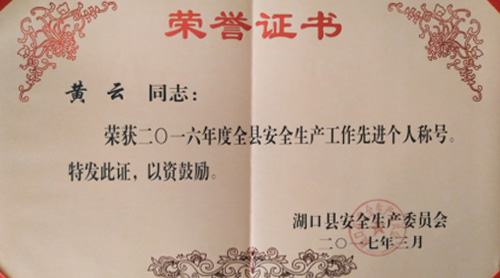 荣誉证书
黄云 同志：
荣获二〇一六年度全县安全生产工作先进个人称号。
特发此证，以资鼓励。
湖口县安全生产委员会
二〇一七年三月